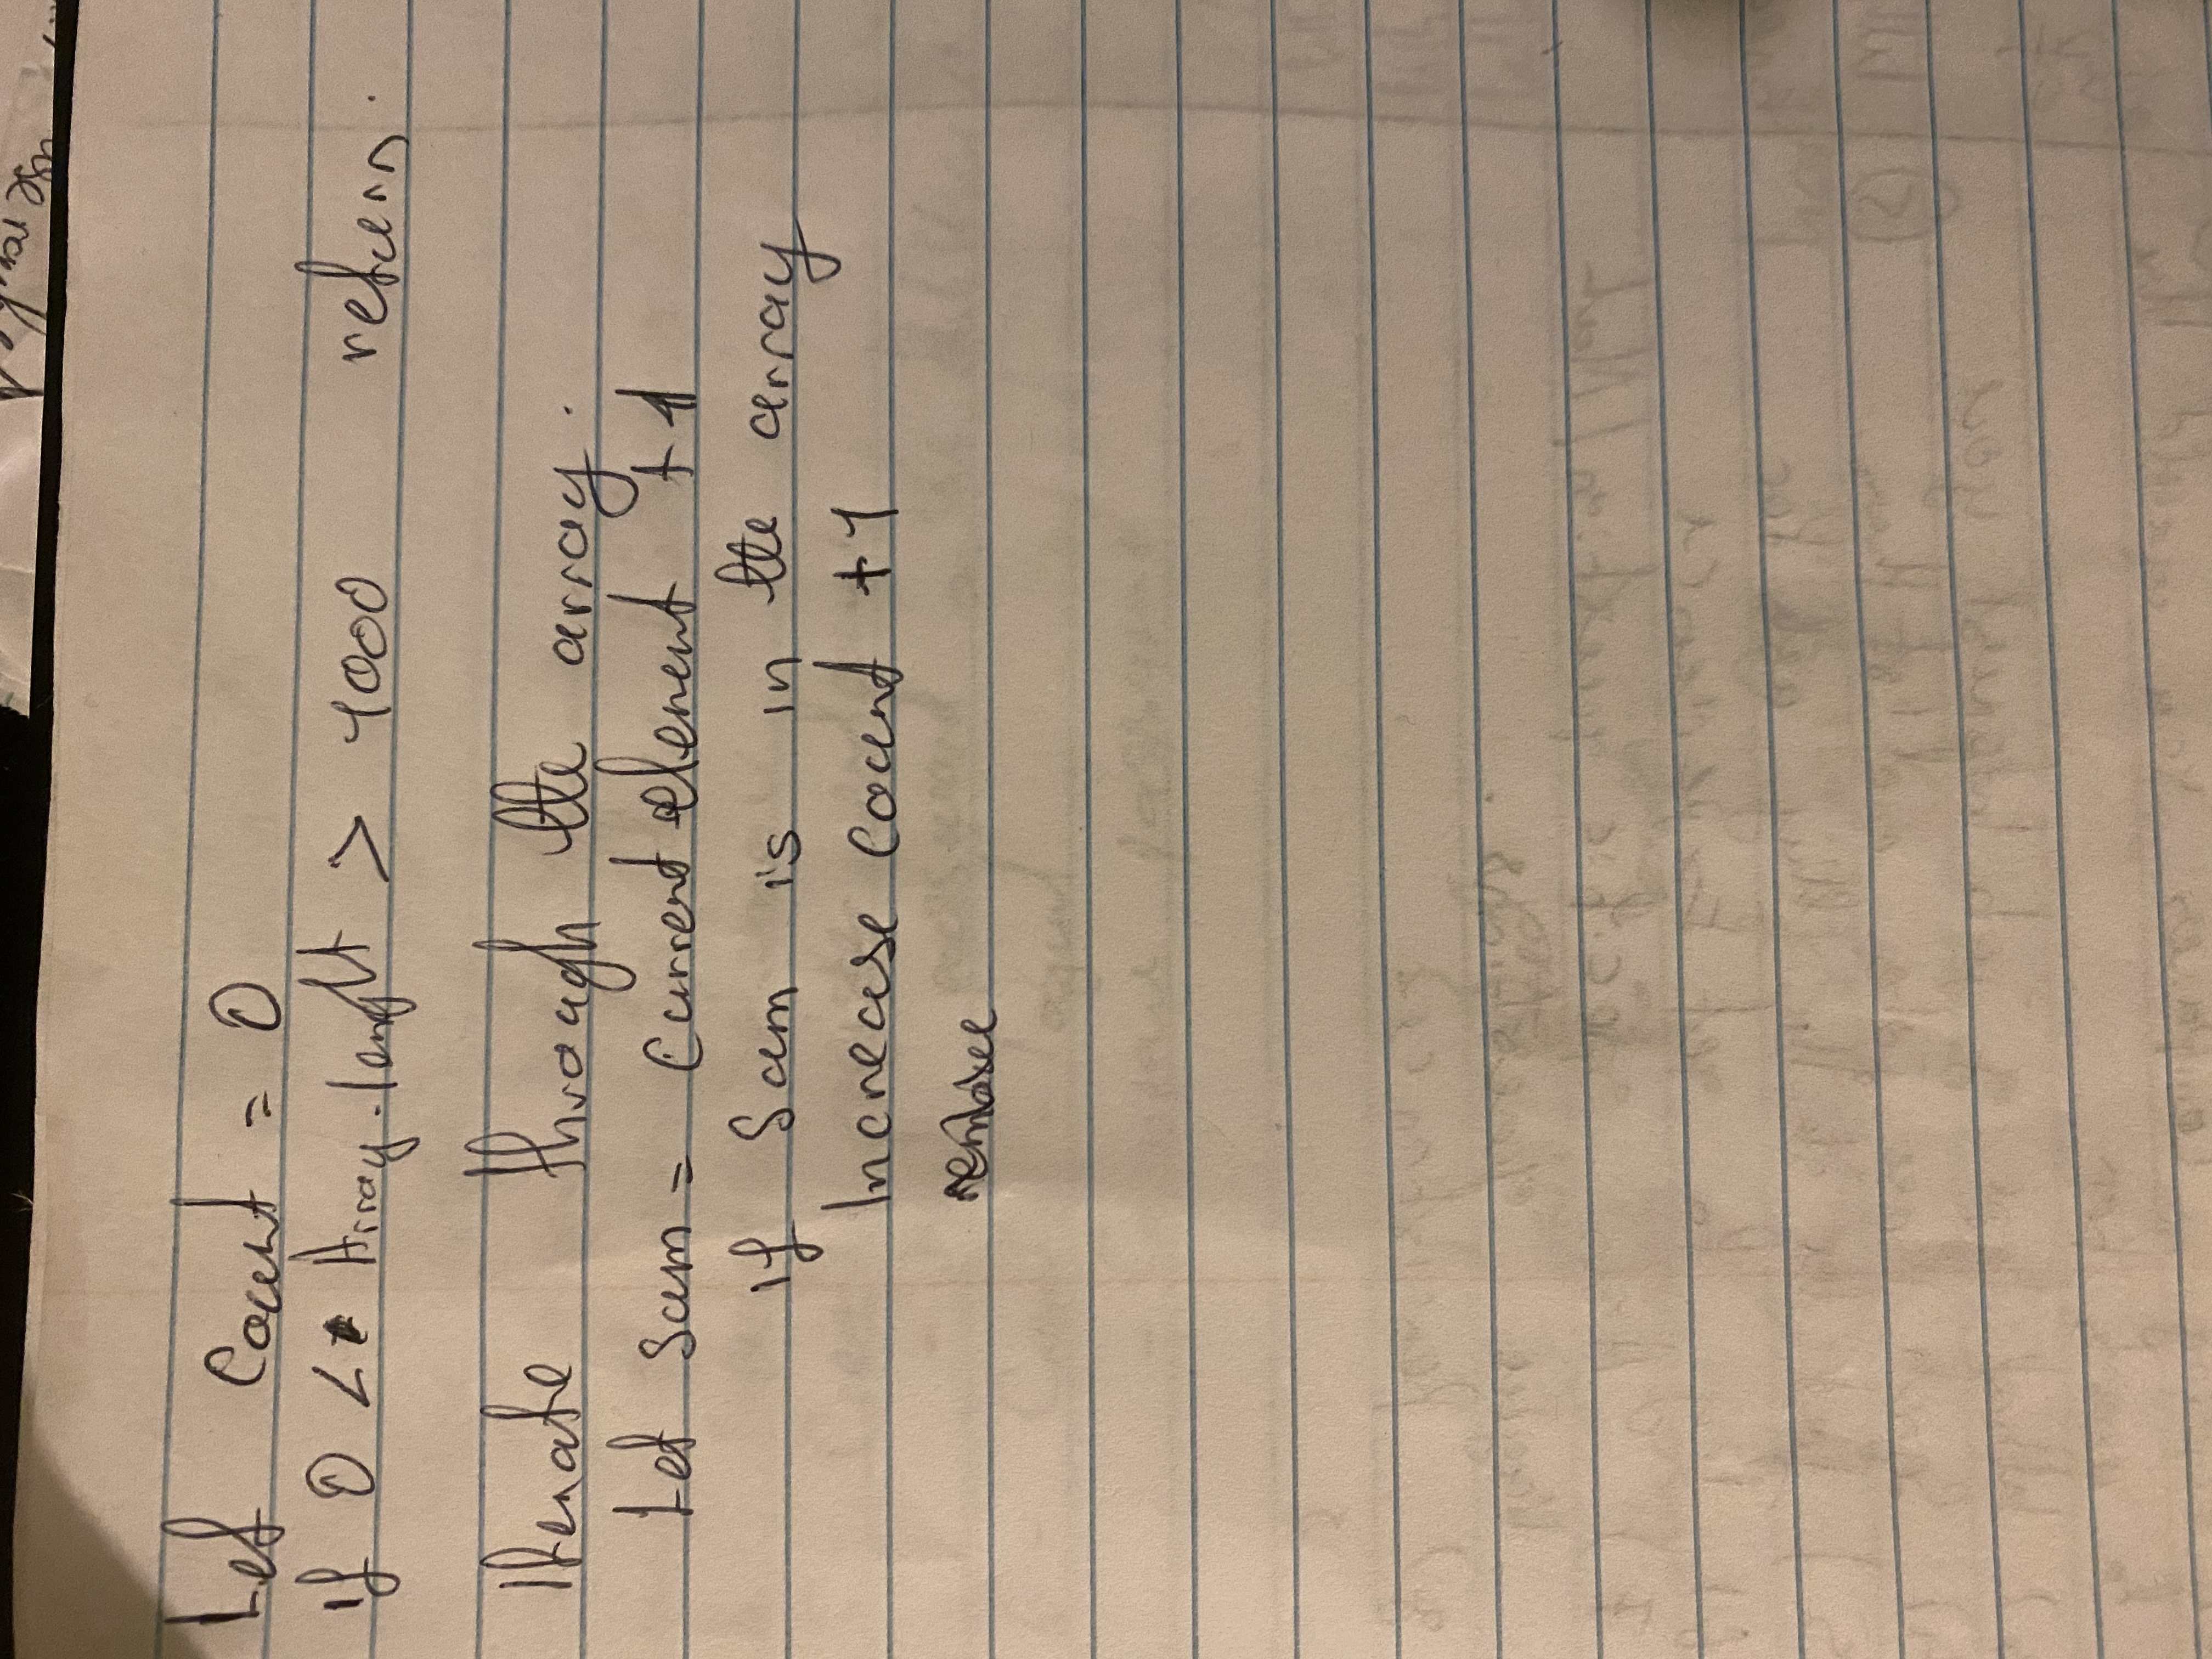 Let Count = 0
if 0 < Array.lenght > 1000 return.
Iterate through the array.
Let Sum = Current element + 1
if Sum is in the array
Increase Count + 1